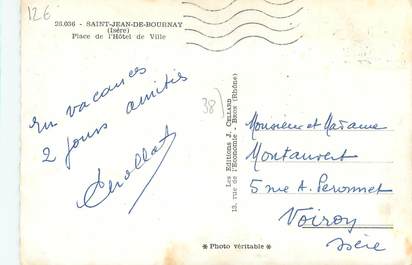 126
26.036 - SAINT-JEAN-DE-BOURNAY
(Isère)
Place de l'Hôtel de Ville
en vacances
2 jours amitiés
38
Les Editions J. CELLARD
13, rue de l'Economie - BRON (Rhône)
Monsieur et Madame
Montauvert
5 rue A. Peronnet
Voiron
Isère
* Photo véritable *